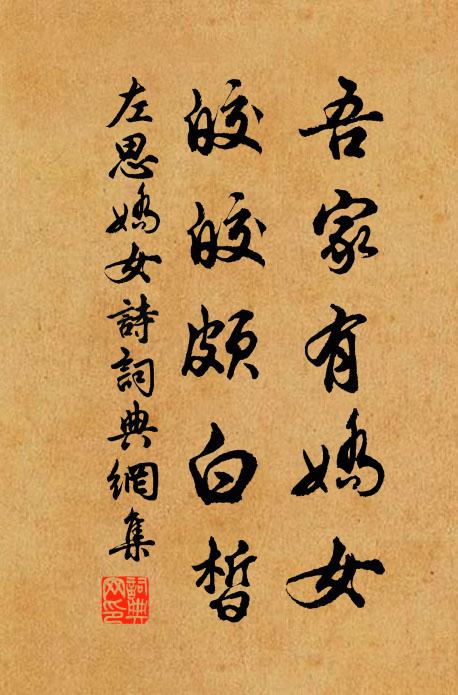 吾家有嬌女
皎皎頗白晳
左思嬌女詩詞典網集
詞典
网印